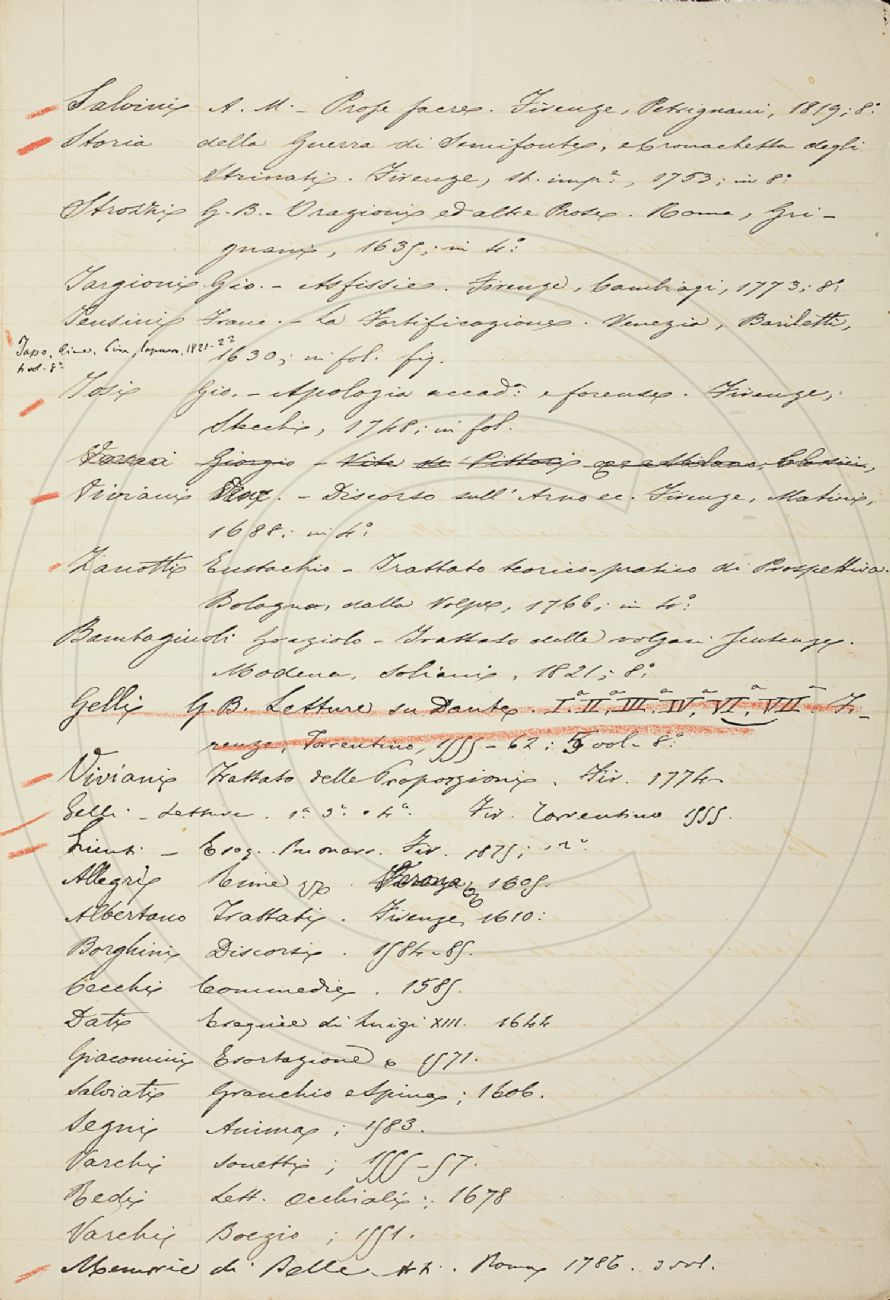 Salvini A. M. - Prose sacre. Firenze, Petrignani, 1819; 8°
Storia della Guerra di Semifonte, e Cronachetta degli
Strinati. Firenze, st. imp.e, 1753; in 8°
Strozzi G. B. - Orazioni ed altre Prose. Roma, Gri-
gnani, 1635; in 4°
Targioni Gio. - Asfissie. Firenze, Cambiagi, 1773; 8°
Tensini Franc. - La Fortificazione. Venezia, Bariletti,
1630; in fol. fig.
Tasso, Rime. Pisa, Capurro, 1821-22
4 vol. 8°
Tosi Gio. - Apologia accad. e forense. Firenze,
Stecchi, 1748; in fol.
Vasari Giorgio - Vite de' Pittori Milano, Classici,
Viviani Vinc. - Discorso sull'Arno ec. Firenze, Matini,
1688; in 4°
Zanotti Eustachio - Trattato teorico-pratico di Prospettiva.
Bologna, dalla Volpe, 1766; in 4°
Bambagiuoli Graziolo - Trattato delle volgari sentenze.
Modena, Soliani, 1821; 8°
Gelli G. B. Letture su Dante. Ia II,a III,a IV,a VI,a VII. Fi-
renze, Torrentino, 1555-62; vol. 8°
Viviani Trattato delle Proporzioni. Fir. 1774
Gelli - Letture. 1a 3a e 4a. Fir. Torrentino 1555.
Buonarr. Fir. 1875; 12°
Allegri Rime 1605.
Albertano Trattati. Firenze, 1610:
Borghini Discorsi. 1584-85.
Cecchi Commedie. 1585.
Dati Esequie di Luigi XIII. 1644
Giacomini Esortazione 1571.
Salviati Granchio e Spina; 1606.
Segni Anima; 1583.
Varchi Sonetti; 1555-57.
Redi Lett. Occhiali; 1678
Varchi Boezio; 1551.
Memorie di Belle Arti. Roma 1786. 3 vol.